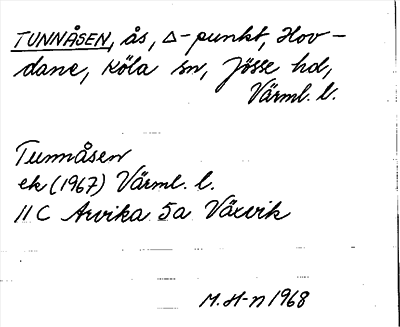 TUNNÅSEN, ås, Δ-punkt, Hov-
dane, Köla sn, Jösse hd,
Värml. l.
Tunnåsen
ek (1967) Värml. l.
11 C Arvika 5a Växvik
M. H-n 1968